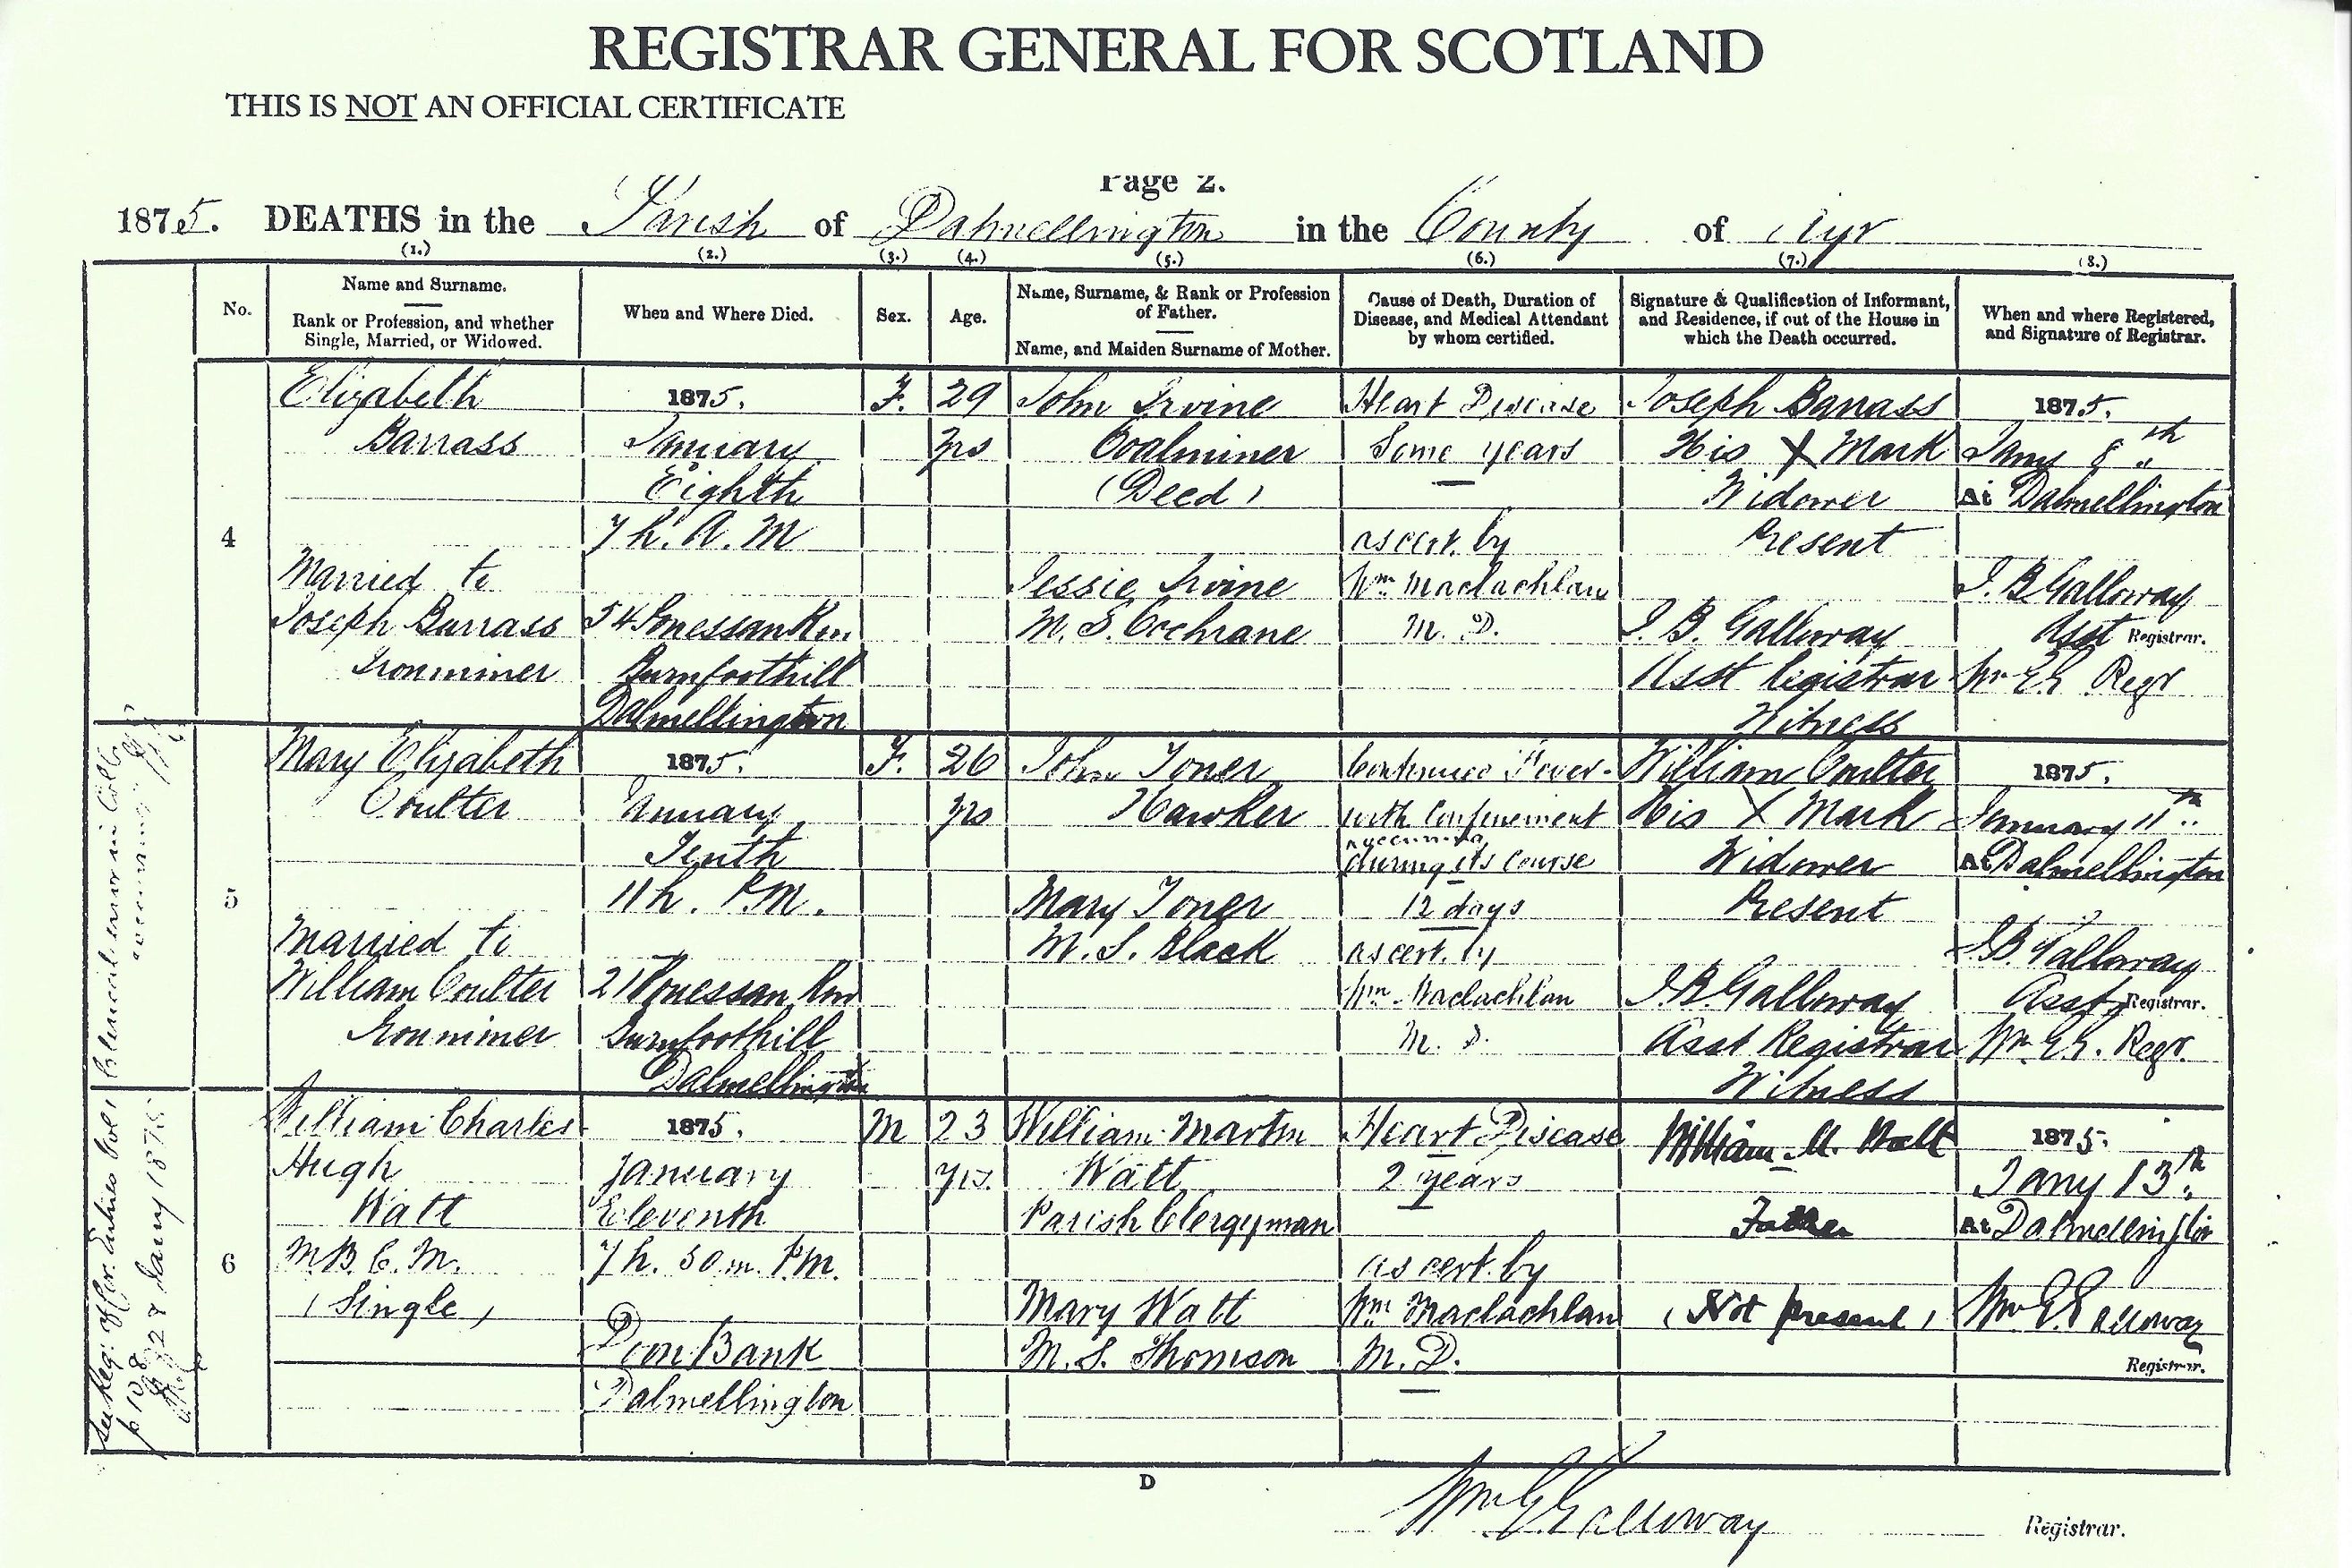 REGISTRAR GENERAL FOR SCOTLAND
THIS IS NOT AN OFFICIAL CERTIFICATE
Page 2.
1875. DEATHS in the Parish of Dalmellington in the County of Ayr
(1.) (2.) (3.) (4.) (5.) (6.) (7.) (8.)
No.
Name and Surname.
Rank or Profession, and whether
Single, Married, or Widowed.
When and Where Died.
Sex.
Age.
Name, Surname, & Rank or Profession
of Father.
Name, and Maiden Surname of Mother.
Cause of Death, Duration of
Disease, and Medical Attendant
by whom certified.
Signature & Qualification of Informant,
and Residence, if out of the House in
which the Death occurred.
When and where Registered,
and Signature of Registrar.
4
Elizabeth
Barrass
Married to
Joseph Barrass
Ironminer
1875.
January
Eighth
7 h. A. M
54 Ponessan Row
Burnfoothill
Dalmellington
F.
29
yrs
John Irvine
Coalminer
(Decd)
Jessie Irvine
M. S. Cochrane
Heart Disease
Some years
as cert. by
Wm Maclachlan
M. D.
Joseph Barrass
His X Mark
Widower
Present
J. B. Galloway
Asst Registrar
Witness
1875.
Jany 8th
At Dalmellington
J. B Galloway
Asst Registrar.
Wm G.G. Regr
5
Mary Elizabeth
Coulter
Married to
William Coulter
Ironminer
1875.
January
Tenth
11 h. P.M.
21 Ponessan Row
Burnfoothill
Dalmellington
F.
26
yrs
John Toner
Hawker
Mary Toner
M. S. Black
Continued Fever
with Confinement
occurring
during its course
12 days
as cert. by
Wm Maclachlan
M. D.
William Coulter
His X Mark
Widower
Present
J. B. Galloway
Asst Registrar
Witness
1875.
January 11th
At Dalmellington
J. B. Galloway
Asst Registrar.
Wm G.G. Regr.
Clerical error in Col 6
occurring
6
William Charles
Hugh
Watt
M.B. C.M.
(Single)
1875.
January
Eleventh
7 h. 50 m. P.M.
Doon Bank
Dalmellington
M
23
yrs.
William Martin
Watt
Parish Clergyman
Mary Watt
M. S. Thomson
Heart Disease
2 years
as cert. by
Wm Maclachlan
M. D.
William M. Watt
Father
(Not present)
1875.
Jany 13th
At Dalmellington
Wm G. Galloway
Registrar.
See Reg: of Cor. Entries Vol 1
p 108
28 Jany 1875
D
Wm G Galloway Registrar.